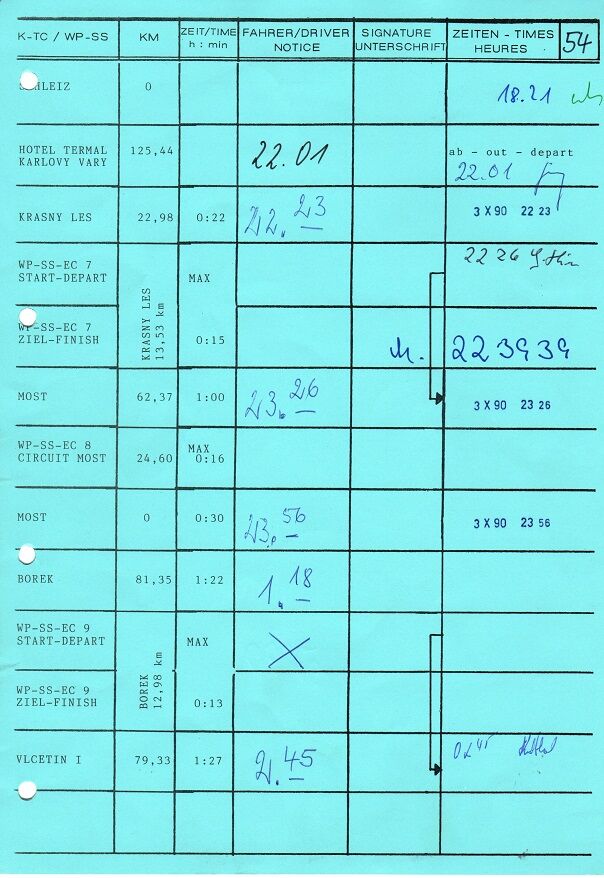 K-TC / WP-SS KM ZEIT/TIME h : min FAHRER/DRIVER NOTICE SIGNATURE UNTERSCHRIFT ZEITEN - TIMES HEURES 54
SCHLEIZ 0 18.21
HOTEL TERMAL 125,44 22.01 ab - out - depart
KARLOVY VARY 22.01
KRASNY LES 22,98 0:22 22.23 3 X 90 22 23
WP-SS-EC 7 22 26
START-DEPART MAX
KRASNY LES
13,53 km
WP-SS-EC 7
ZIEL-FINISH 0:15 22 39 39
MOST 62,37 1:00 23.26 3 X 90 23 26
WP-SS-EC 8 MAX
CIRCUIT MOST 24,60 0:16
MOST 0 0:30 23.56 3 X 90 23 56
BOREK 81,35 1:22 1.18
WP-SS-EC 9
START-DEPART MAX X
BOREK
12,98 km
WP-SS-EC 9
ZIEL-FINISH 0:13
VLCETIN I 79,33 1:27 2.45